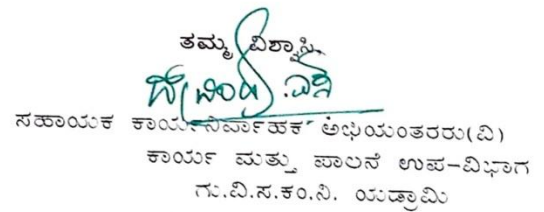 ತಮ್ಮ ವಿಶ್ವಾಸಿ
ಸಹಾಯಕ ಕಾರ್ಯನಿರ್ವಾಹಕ ಅಭಿಯಂತರರು(ವಿ)
ಕಾರ್ಯ ಮತ್ತು ಪಾಲನೆ ಉಪ-ವಿಭಾಗ
ಗು.ವಿ.ಸ.ಕಂ.ನಿ. ಯಡ್ರಾಮಿ